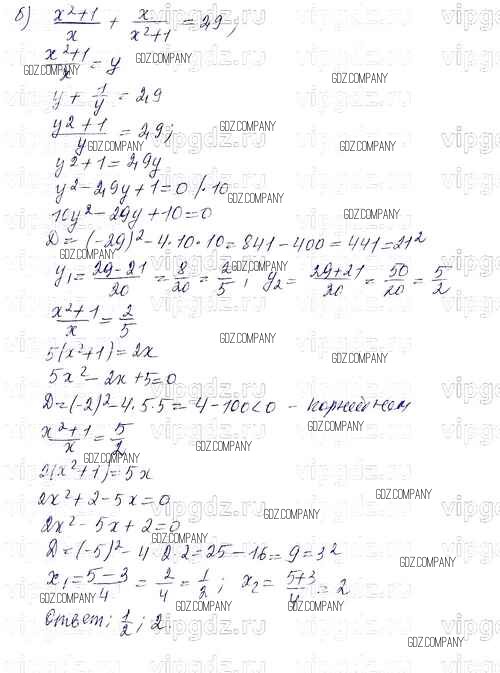 б) (x²+1)/x + x/(x²+1) = 2,9;
(x²+1)/x = y
y + 1/y = 2,9
(y²+1)/y = 2,9;
y²+1 = 2,9y
y² - 2,9y + 1 = 0 /·10
10y² - 29y + 10 = 0
D = (-29)² - 4·10·10 = 841 - 400 = 441 = 21²
y₁ = (29-21)/20 = 8/20 = 2/5; y₂ = (29+21)/20 = 50/20 = 5/2
(x²+1)/x = 2/5
5(x²+1) = 2x
5x² - 2x + 5 = 0
D = (-2)² - 4·5·5 = 4 - 100 < 0 - корней нет
(x²+1)/x = 5/2
2(x²+1) = 5x
2x² + 2 - 5x = 0
2x² - 5x + 2 = 0
D = (-5)² - 4·2·2 = 25 - 16 = 9 = 3²
x₁ = (5-3)/4 = 2/4 = 1/2; x₂ = (5+3)/4 = 2
Ответ: 1/2; 2.
GDZ.COMPANY
vipgdz.ru